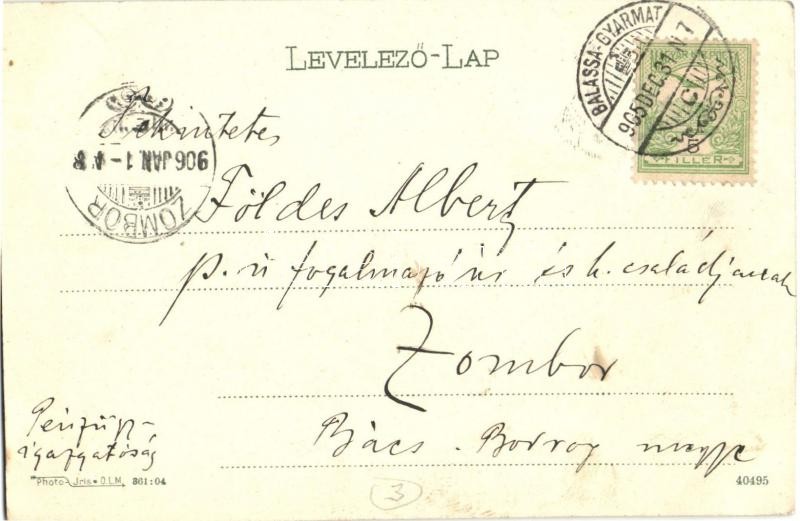 LEVELEZŐ-LAP
BALASSA-GYARMAT
905 DEC. 31. N 7
C
5
FILLER
906 JAN. 1 - 
ZOMBOR
Tekintetes
Földes Albert
p. ü fogalmazó úr és k. családjának
Zombor
Bács. Bodrog megye
Pénzügy-
igazgatóság
Photo-Jris•O.L.M. 361:04
40495
3